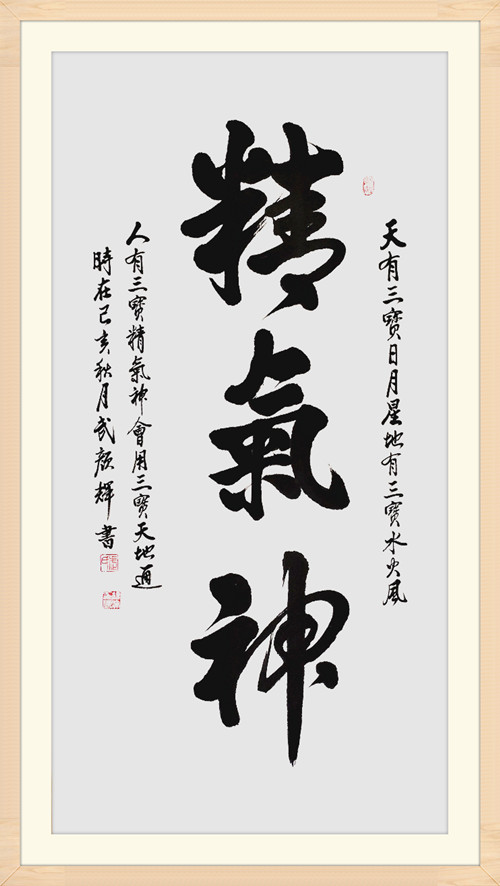 天有三寶日月星地有三寶水火風
精氣神
人有三寶精氣神會用三寶天地通
時在己亥秋月武顏輝書